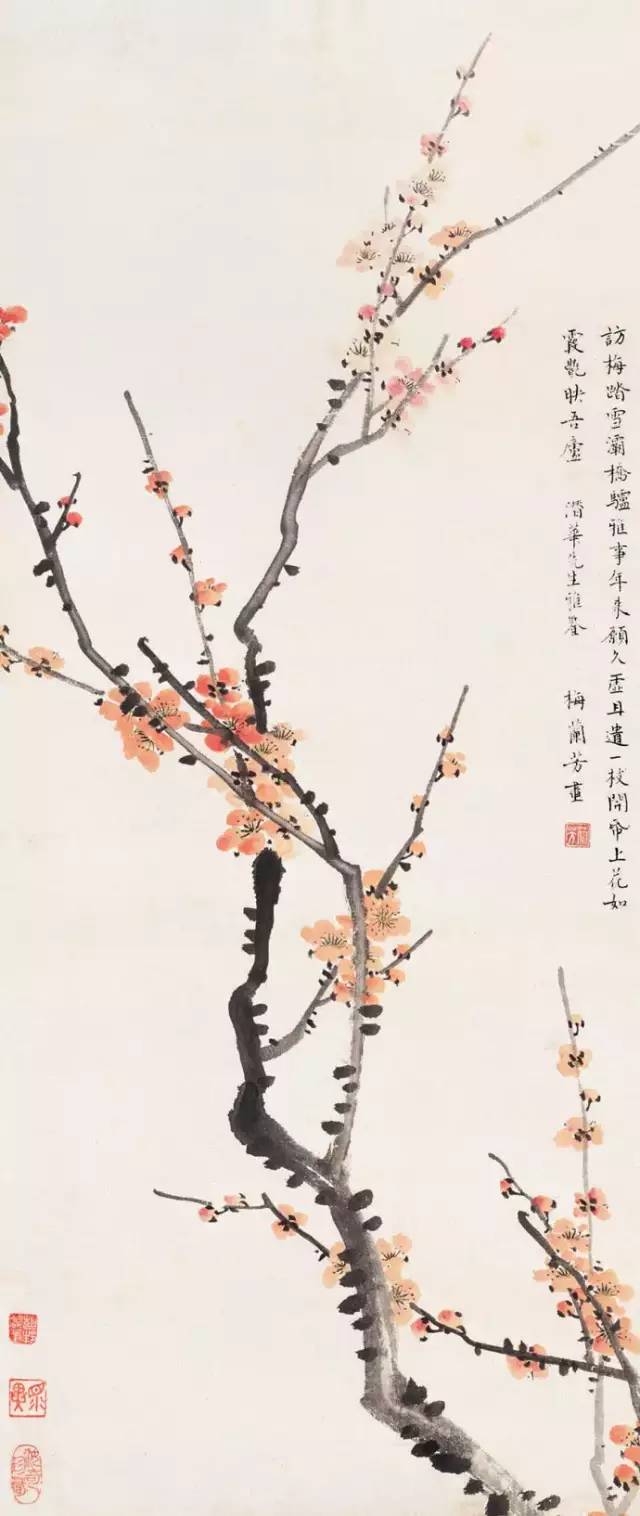 訪梅踏雪灞橋驢雅事年來願久虛且遣一枝開帋上花如
霞艷映吾廬 潛華先生雅鑒 梅蘭芳畫